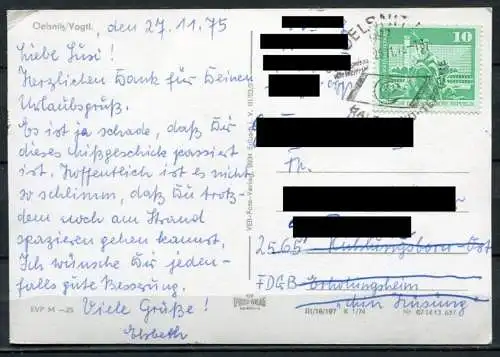 Oelsnitz/Vogtl., den 27.11.75
Liebe Susi!
Herzlichen Dank für Deinen
Urlaubsgruß.
Es ist ja schade, daß Dir
dieses Mißgeschick passiert
ist. Hoffentlich ist es nicht
so schlimm, daß Du trotz
dem noch am Strand
spazieren gehen kannst.
Ich wünsche Dir jeden-
falls gute Besserung.
Viele Grüße!
Elsbeth
EVP M —,25
OELSNITZ
10
2565 Kühlungsborn-Ost
FDGB-Erholungsheim
III/18/197 K 1/74